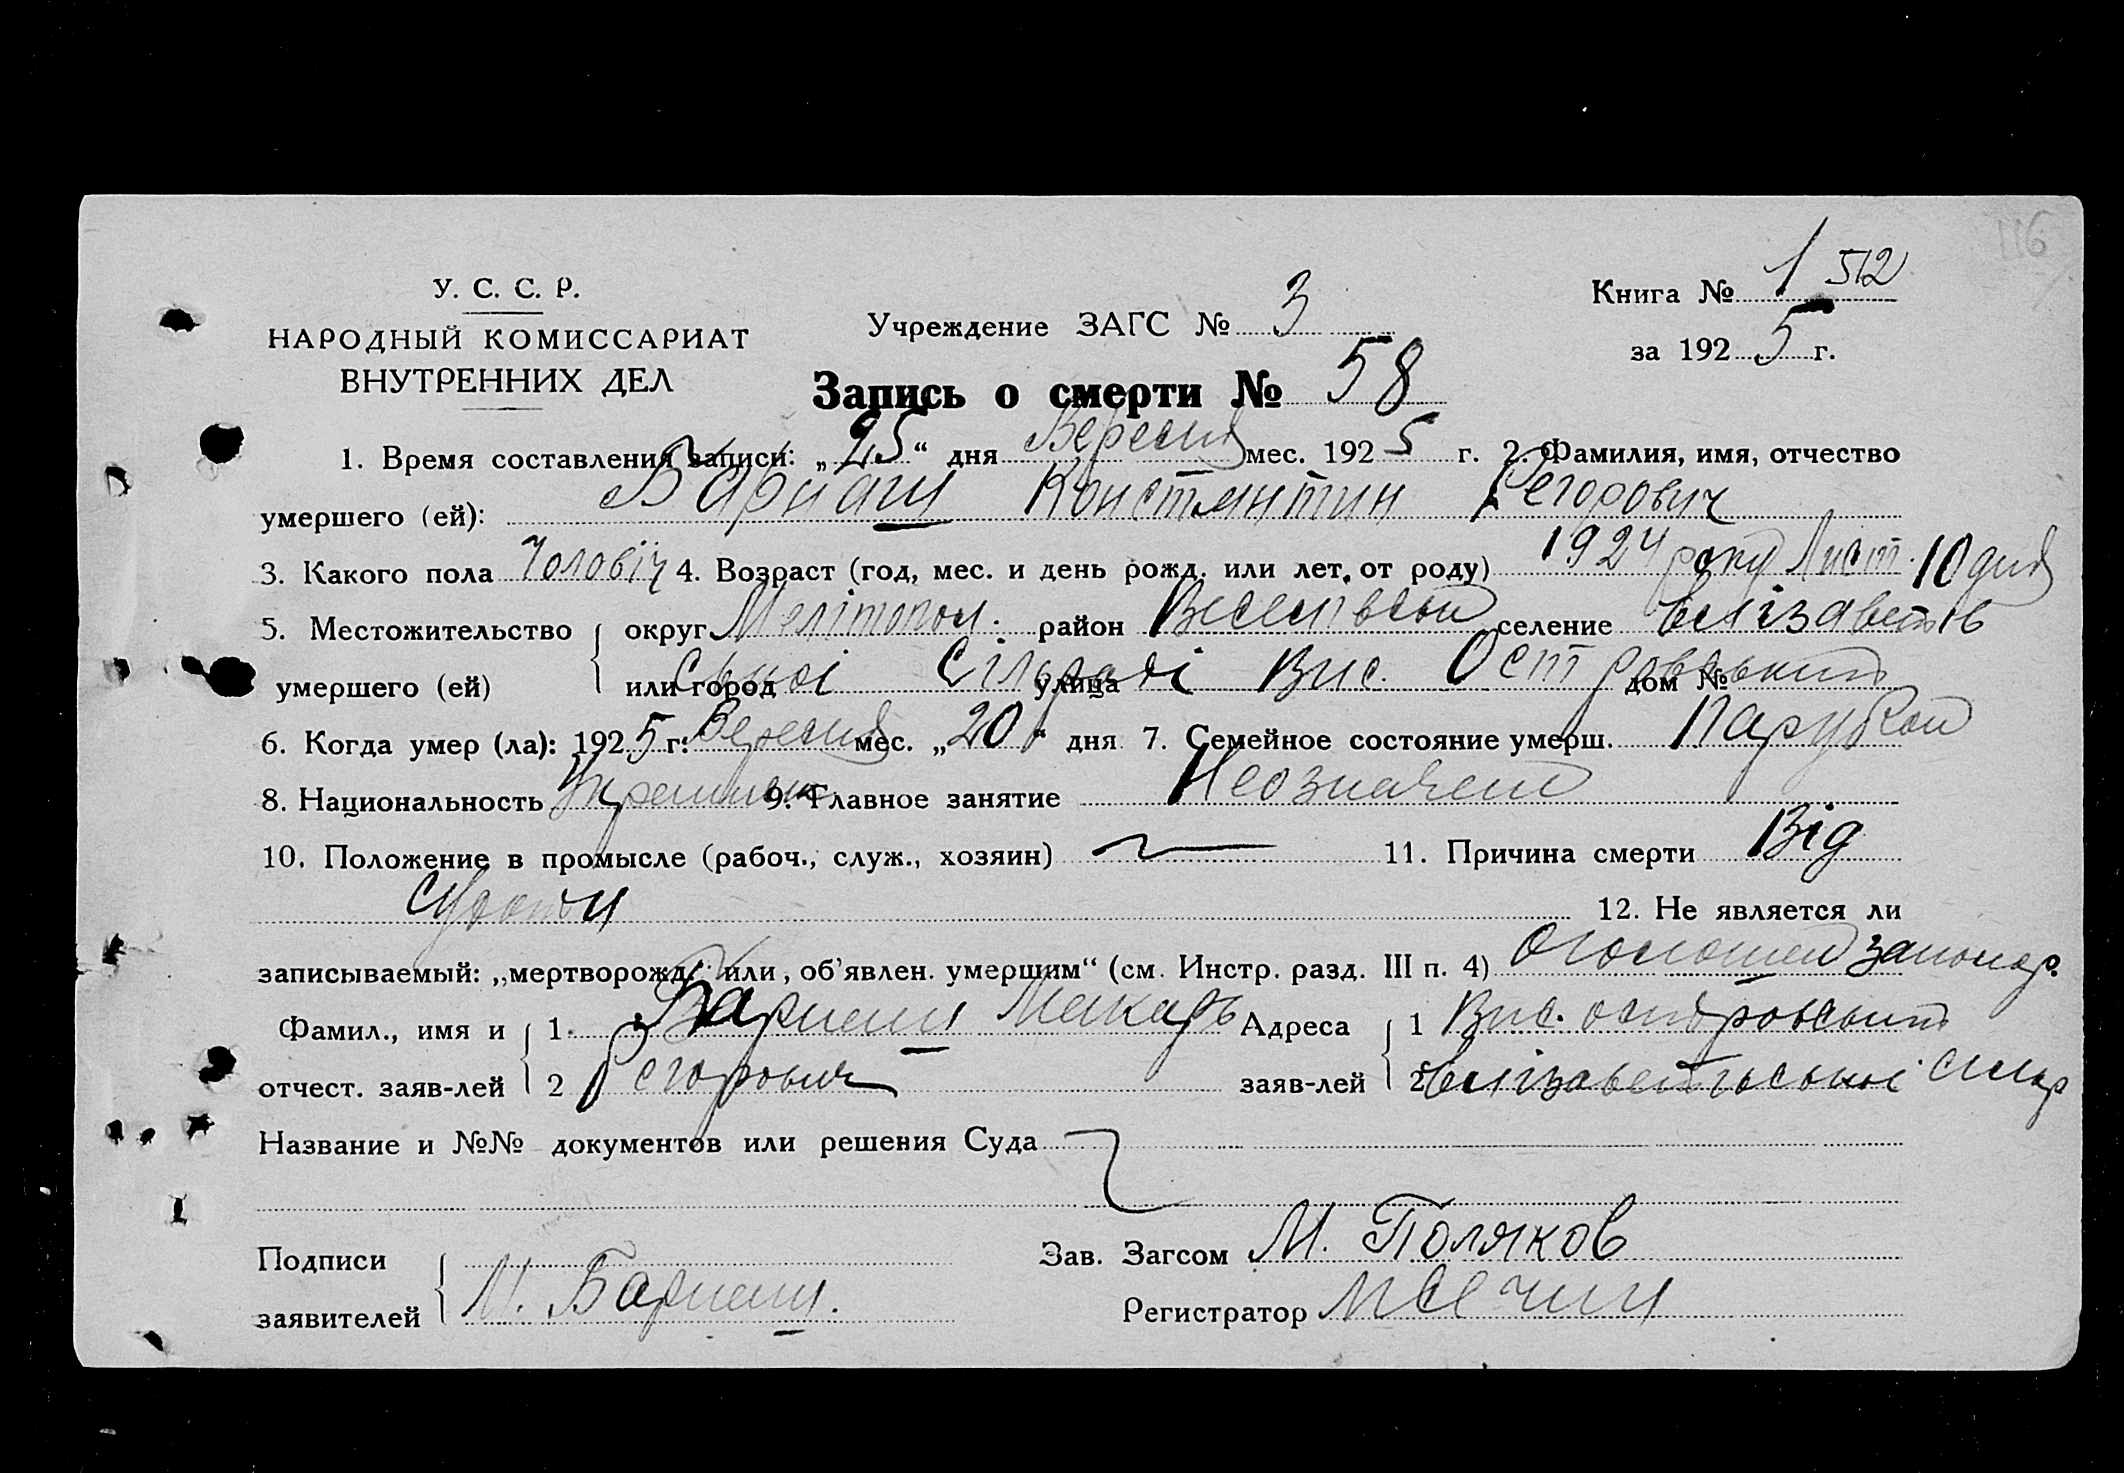 116
У. С. С. Р.
НАРОДНЫЙ КОМИССАРИАТ
ВНУТРЕННИХ ДЕЛ
Учреждение ЗАГС № 3
Книга № 1 512
за 1925 г.
Запись о смерти № 58
1. Время составления записи: „25“ дня Вересня мес. 1925 г. 2. Фамилия, имя, отчество
умершего (ей): Барнаш Константин Єгорович
3. Какого пола Чоловіч 4. Возраст (год, мес. и день рожд. или лет от роду) 1924 року Лист. 10 дня
5. Местожительство округ Мелітопол. район Веселівськ селение Єлізаветів
умершего (ей) или город ської Сільради улица Вис. Островський дом №
6. Когда умер (ла): 1925 г. Вересня мес. „20“ дня 7. Семейное состояние умерш. Парубок
8. Национальность 9. Главное занятие
10. Положение в промысле (рабоч., служ., хозяин) 11. Причина смерти Від
12. Не является ли
записываемый: „мертворожд.“ или „об'явлен. умершим“ (см. Инстр. разд. III п. 4)
Фамил., имя и 1. Барнаш Макарь Адреса 1 Вис. Островський
отчест. заяв-лей 2 Єгорович заяв-лей 2 Єлізаветівської
Название и №№ документов или решения Суда
Подписи Зав. Загсом М. Поляков
заявителей М. Барнаш. Регистратор